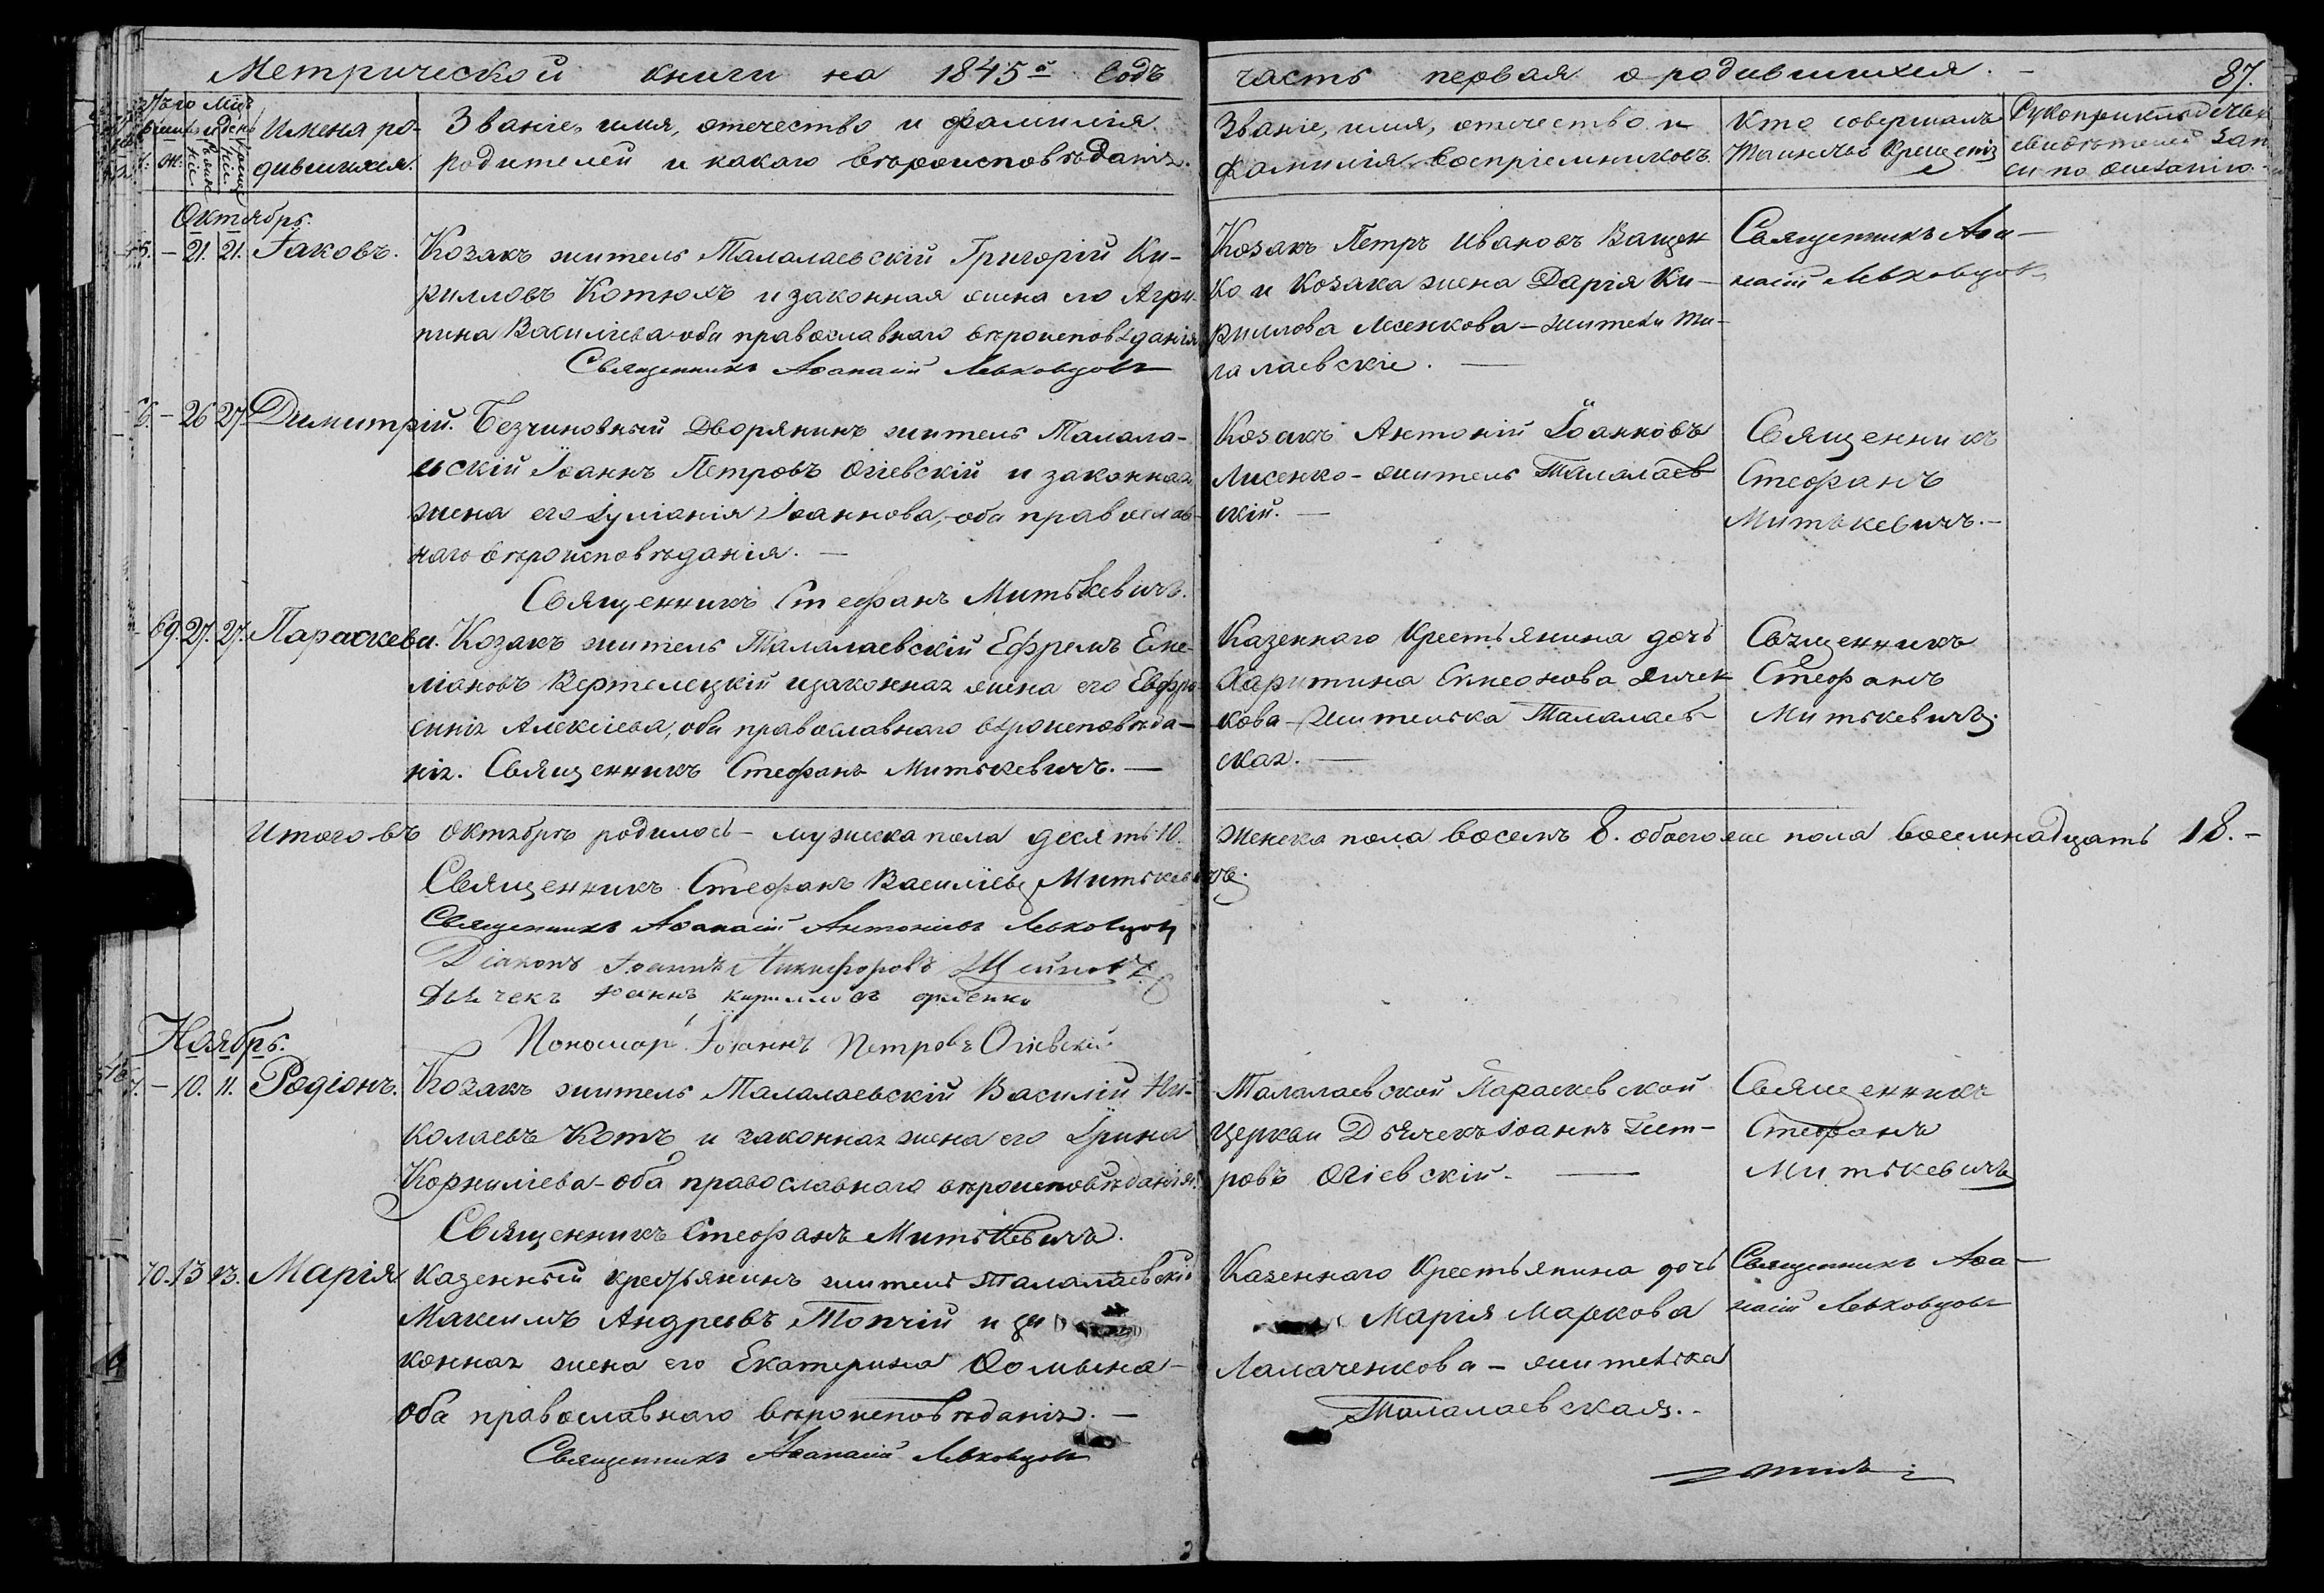 Метрической книги на 1845й годъ часть первая о родившихся. 87.
Имена ро-
дившихся.
Званіе, имя, отечество и фамилія
родителей и какаго вѣроисповѣданія.
Званіе, имя, отечество и
фамилія воспріемниковъ.
Кто совершалъ
Таинство крещенія
Рукоприкладство
свидѣтелей запи
си по желанію.
Октябрь.
5. – 21. 21. Іаковъ.
Козакъ житель Талалаевскій Григорій Ки-
рилловъ Котюхъ и законная жена его Агри-
пина Василіева оба православнаго вѣроисповѣданія
Священникъ Аѳанасій Левковцовъ
Козакъ Петръ Ивановъ Ващен
ко и Козака жена Дарія Ки-
риллова Лесенкова – жители Та-
лалаевскіе. —
Священникъ Аѳа-
насій Левковцовъ
6. – 26 27. Димитрій.
Безчиновный Дворянинъ житель Талала-
евскій Іоаннъ Петровъ Огіевскій и законная
жена его Іуліанія Іоаннова, оба православ-
наго вѣроисповѣданія. —
Священникъ Стефанъ Митькевичъ.
Козакъ Антоній Іоанновъ
Лисенко – житель Талалаев
скій. —
Священникъ
Стефанъ
Митькевичъ. –
69. 27. 27. Параскева.
Козакъ житель Талалаевскій Ефремъ Еме-
ліановъ Вертелецкій и законная жена его Евфро
синія Алексіева, оба православнаго вѣроисповѣда-
нія. Священникъ Стефанъ Митькевичъ. —
Казеннаго Крестьянина дочь
Харитина Симеонова
кова – жителька Талалаев
ская. —
Священникъ
Стефанъ
Митькевичъ.
Итого въ Октябрѣ родилось – мужеска пола десять 10. женска пола восемь 8. обоего же пола восемнадцать 18. –
Священникъ Стефанъ Василіевъ Митькевичъ.
Священникъ Аѳанасій Антоніевъ Левковцовъ
Діаконъ Іоаннъ Никифоровъ
Дьячекъ Іоаннъ Кирилловъ
Пономарь Іоаннъ Петровъ Огіевскій
Ноябрь.
– 10. 11. Родіонъ.
Козакъ житель Талалаевскій Василій Ни-
колаевъ Котъ и законная жена его Ірина
Корниліева – оба православнаго вѣроисповѣданія.
Священникъ Стефанъ Митькевичъ.
Талалаевской Параскевской
Церкви Дьячекъ Іоаннъ Пет-
ровъ Огіевскій. —
Священникъ
Стефанъ
Митькевичъ
70. 13 13. Марія
Казенный крестьянинъ житель Талалаевскій
Максимъ Андреевъ Топчій и за
конная жена его Екатерина Ѳомина –
оба православнаго вѣроисповѣданія. —
Священникъ Аѳанасій Левковцовъ
Казеннаго Крестьянина дочь
Марія Маркова
Ламаченкова – жителька
Талалаевская. –
Священникъ Аѳа-
насій Левковцовъ